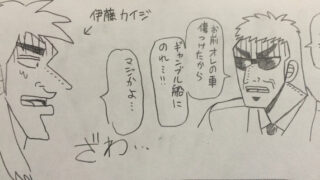 伊藤カイジ
お前オレの車
傷つけたから
ギャンブル船に
のれ…!!
マジかよ…
ざわ…